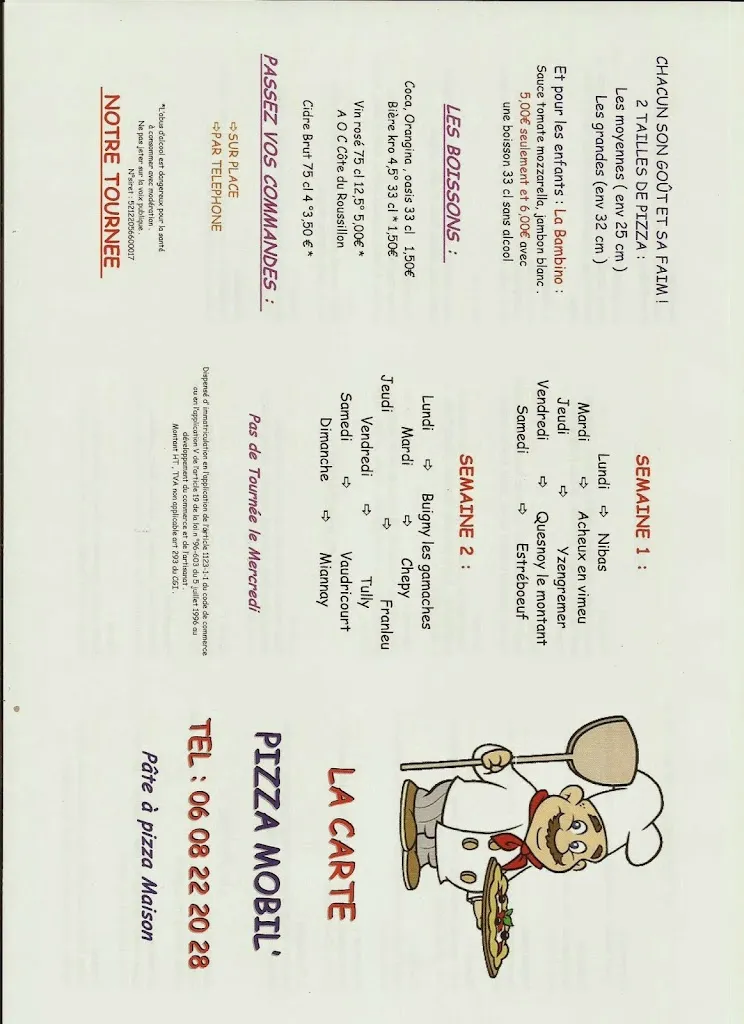 CHACUN SON GOÛT ET SA FAIM !
2 TAILLES DE PIZZA :
Les moyennes ( env 25 cm )
Les grandes (env 32 cm )
Et pour les enfants : La Bambino :
Sauce tomate mozzarella, jambon blanc .
5,00€ seulement et 6,00€ avec
une boisson 33 cl sans alcool
LES BOISSONS :
Coca, Orangina , oasis 33 cl 1,50€
Bière kro 4,5° 33 cl * 1,50€
Vin rosé 75 cl 12,5° 5,00€ *
A O C Côte du Roussillon
Cidre Brut 75 cl 4 °3,50 € *
PASSEZ VOS COMMANDES :
⇨SUR PLACE
⇨PAR TELEPHONE
*L'abus d'alcool est dangereux pour la santé
à consommer avec modération .
Ne pas jeter sur la voix publique .
N°siret : 52122056600017
NOTRE TOURNEE
SEMAINE 1 :
Lundi ⇨ Nibas
Mardi ⇨ Acheux en vimeu
Jeudi ⇨ Yzengremer
Vendredi ⇨ Quesnoy le montant
Samedi ⇨ Estréboeuf
SEMAINE 2 :
Lundi ⇨ Buigny les gamaches
Mardi ⇨ Chepy
Jeudi ⇨ Franleu
Vendredi ⇨ Tully
Samedi ⇨ Vaudricourt
Dimanche ⇨ Miannay
Pas de Tournée le Mercredi
Dispensé d' immatriculation en l'application de l'article 1123-1-1 du code de commerce
ou en l'application V de l'article 19 de la loi n °96-603 du 5 juillet 1996 au
développement du commerce et de l'artisanat .
Montant HT , TVA non applicable art 293 du CGI .
LA CARTE
PIZZA MOBIL'
TEL : 06 08 22 20 28
Pâte à pizza Maison